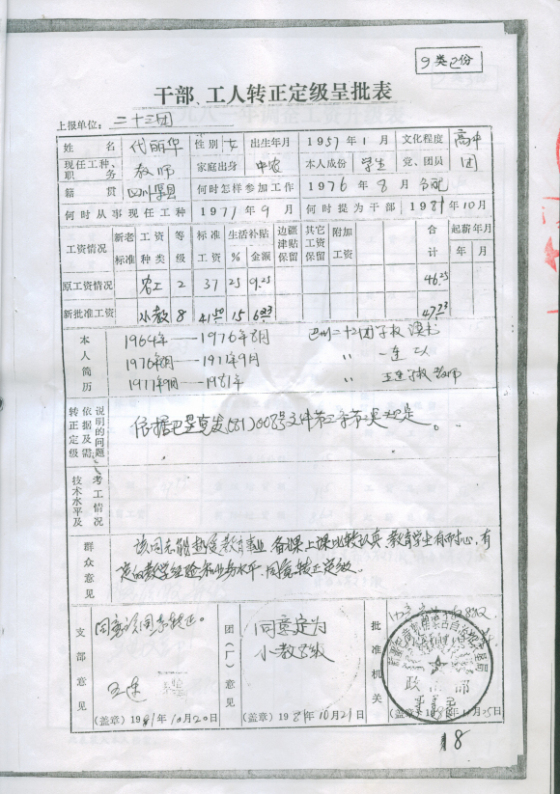 9类2份
干部、工人转正定级呈批表
上报单位：二十三团
姓名 代丽华 性别 女 出生年月 1957年1月 文化程度 高中
现任工种、职务 教师 家庭出身 中农 本人成份 学生 党、团员 团
籍贯 四川 何时怎样参加工作 1976年8月 分配
何时从事现任工种 1977年9月 何时提为干部 1981年10月
工资情况 新老标准 工资种类 等级 标准工资 生活补贴 % 金额 边疆津贴保留 其它工资保留 附加工资 合计 起薪年月 年 月
原工资情况 农工 2 37 25 9.25 46.25
新批准工资 小教 8 15 6.23 47.73
本人简历
1964年——1976年8月 二十团学校 读书
1976年8月——1977年9月 〃 一连
1977年9月——1981年 〃 学校 教师
转正定级依据及需说明的问题
依据 发(81)008号文件 规定。
技术水平及考工情况
群众意见
该同志能热爱教育事业，备课上课比较认真，教育学生有耐心，有
定的教学经验和业务水平，同意转正定级。
支部意见 同意该同志转正。
(盖章) 1981年10月20日
团(厂)意见 同意定为
小教8级
(盖章) 1981年10月21日
批准机关
政 部
(盖章)
18